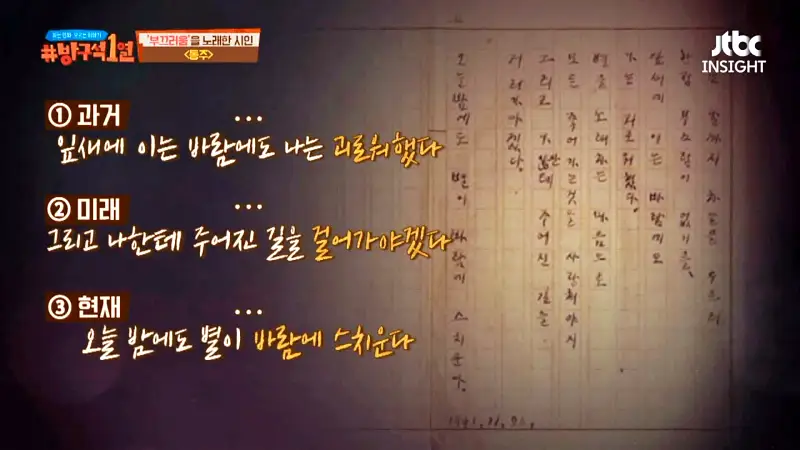 #방구석1열
'부끄러움'을 노래한 시인
<동주>
jtbc
INSIGHT
① 과거
...
잎새에 이는 바람에도 나는 괴로워했다
② 미래
...
그리고 나한테 주어진 길을 걸어가야겠다
③ 현재
...
오늘 밤에도 별이 바람에 스치운다
날까지 하늘을 우러러
부끄럼이 없기를,
잎새에 이는 바람에도
나는 괴로워했다.
별을 노래하는 마음으로
모든 죽어가는것을 사랑해야지
그리고 주어진 길을
거러가야겠다.
오늘밤에도 별이 바람에 스치운다.